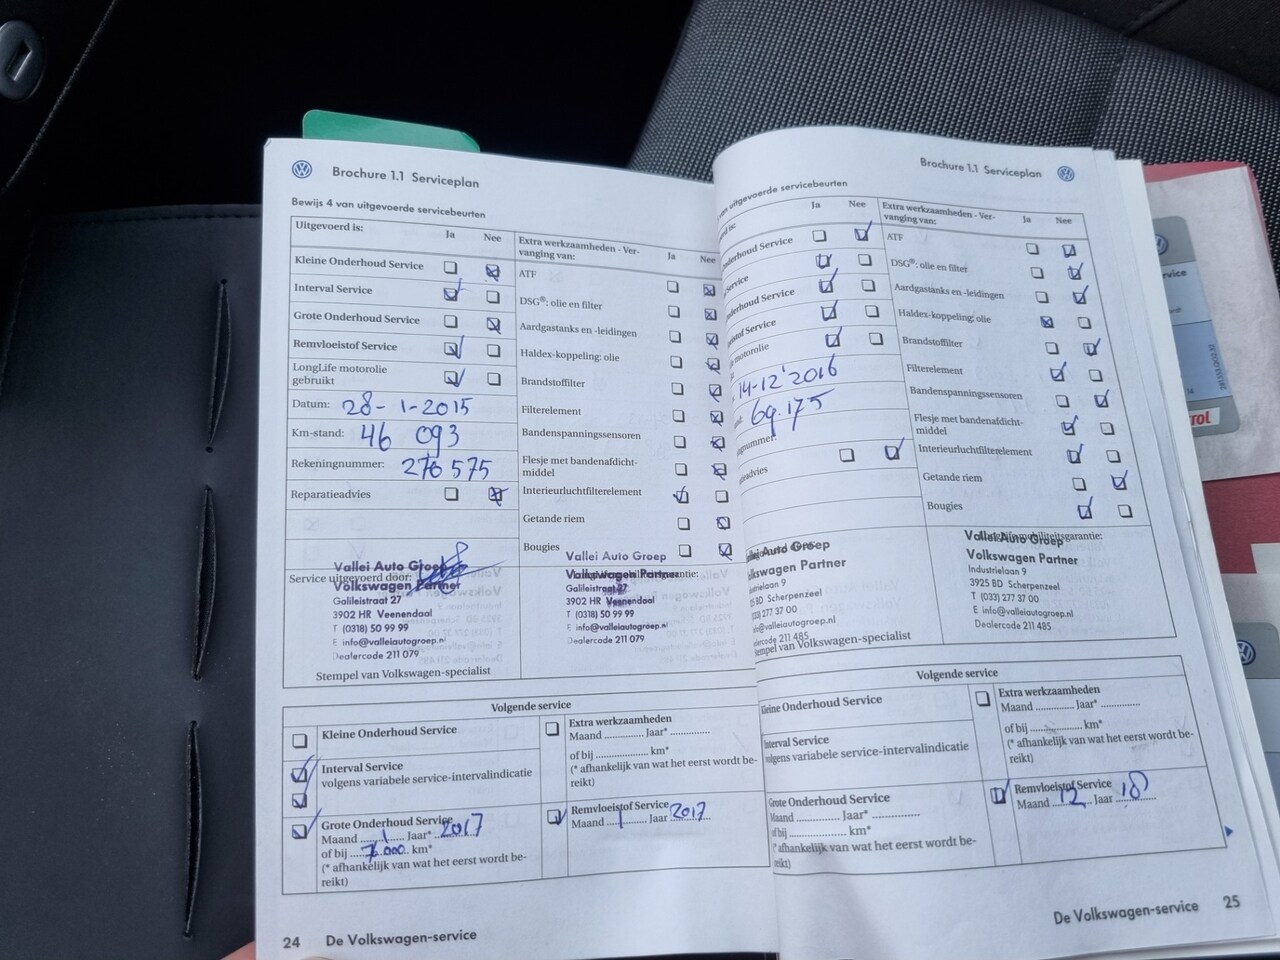 Brochure 1.1 Serviceplan
Bewijs 4 van uitgevoerde servicebeurten
Uitgevoerd is:
Ja
Nee
Kleine Onderhoud Service
Interval Service
Grote Onderhoud Service
Remvloeistof Service
LongLife motorolie
gebruikt
Datum: 28-1-2015
Km-stand: 46 093
Rekeningnummer: 276 575
Reparatieadvies
Extra werkzaamheden - Ver-
vanging van:
Ja
Nee
ATF
DSG®: olie en filter
Aardgastanks en -leidingen
Haldex-koppeling: olie
Brandstoffilter
Filterelement
Bandenspanningssensoren
Flesje met bandenafdicht-
middel
Interieurluchtfilterelement
Getande riem
Bougies
Service uitgevoerd door:
Vallei Auto Groep
Volkswagen Partner
Galileistraat 27
3902 HR Veenendaal
T (0318) 50 99 99
E info@valleiautogroep.nl
Dealercode 211 079
Stempel van Volkswagen-specialist
Vallei Auto Groep
Volkswagen Partner
Galileistraat 27
3902 HR Veenendaal
T (0318) 50 99 99
E info@valleiautogroep.nl
Dealercode 211 079
Volgende service
Kleine Onderhoud Service
Interval Service
volgens variabele service-intervalindicatie
Grote Onderhoud Service
Maand 1 Jaar* 2017
of bij 76.000 km*
(* afhankelijk van wat het eerst wordt be-
reikt)
Extra werkzaamheden
Maand Jaar*
of bij km*
(* afhankelijk van wat het eerst wordt be-
reikt)
Remvloeistof Service
Maand 1 Jaar 2017
24 De Volkswagen-service
Brochure 1.1 Serviceplan
van uitgevoerde servicebeurten
Ja
Nee
Service
motorolie
14-12 2016
69.175
Extra werkzaamheden - Ver-
vanging van:
Ja
Nee
ATF
DSG®: olie en filter
Aardgastanks en -leidingen
Haldex-koppeling: olie
Brandstoffilter
Filterelement
Bandenspanningssensoren
Flesje met bandenafdicht-
middel
Interieurluchtfilterelement
Getande riem
Bougies
Auto Groep
Partner
Scherpenzeel
277 37 00
info@valleiautogroep.nl
211 485
Stempel van Volkswagen-specialist
Vallei Auto Groep
Volkswagen Partner
Industrielaan 9
3925 BD Scherpenzeel
T (033) 277 37 00
E info@valleiautogroep.nl
Dealercode 211 485
Volgende service
Kleine Onderhoud Service
Interval Service
volgens variabele service-intervalindicatie
Grote Onderhoud Service
Maand Jaar*
of bij km*
(* afhankelijk van wat het eerst wordt be-
reikt)
Extra werkzaamheden
Maand Jaar*
of bij km*
(* afhankelijk van wat het eerst wordt be-
reikt)
Remvloeistof Service
Maand 12 Jaar 18
De Volkswagen-service 25